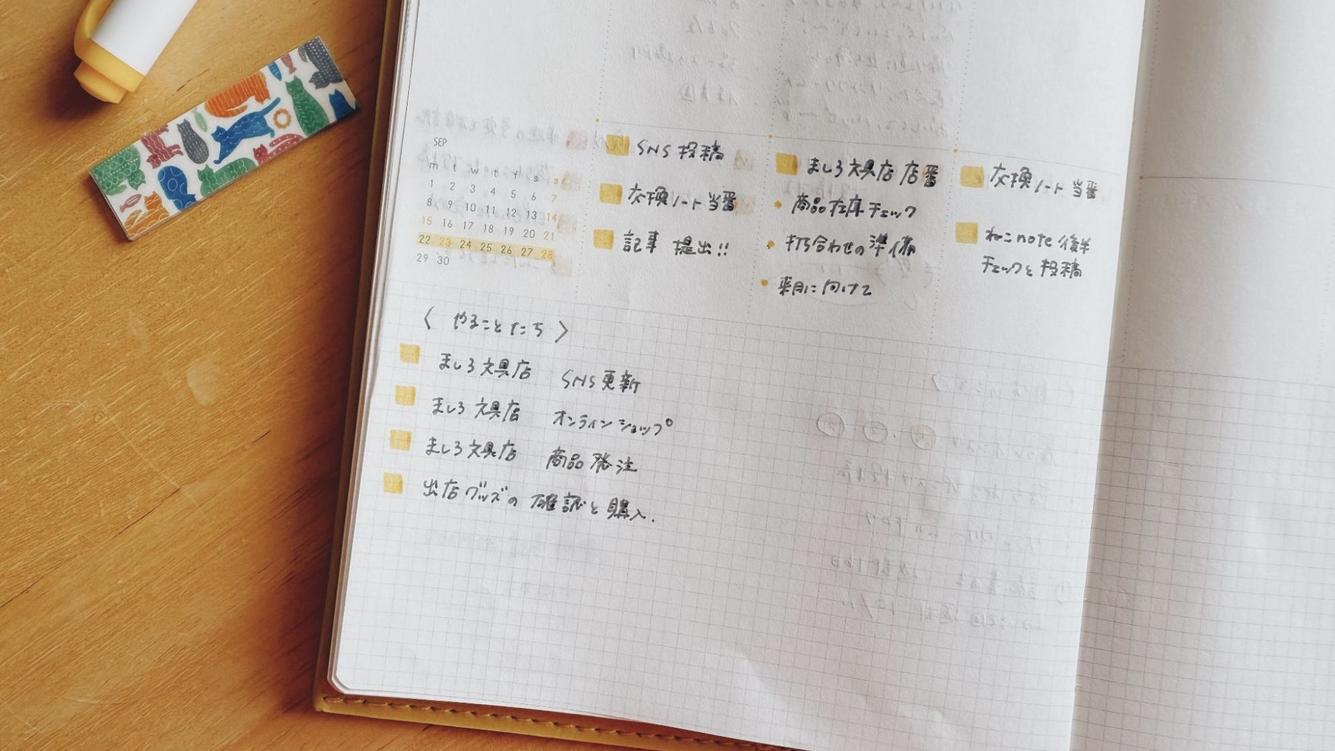 SEP
m t w t f s s
1 2 3 4 5 6 7
8 9 10 11 12 13 14
15 16 17 18 19 20 21
22 23 24 25 26 27 28
29 30
SNS 投稿
交換ノート当番
記事 提出!!
ましろ文具店 店番
・商品在庫チェック
・打ち合わせの準備
・来月に向けて
交換ノート当番
ねこnote 後半
チェックと投稿
〈 やることたち 〉
ましろ文具店 SNS更新
ましろ文具店 オンラインショップ
ましろ文具店 商品発注
出店グッズの確認と購入.